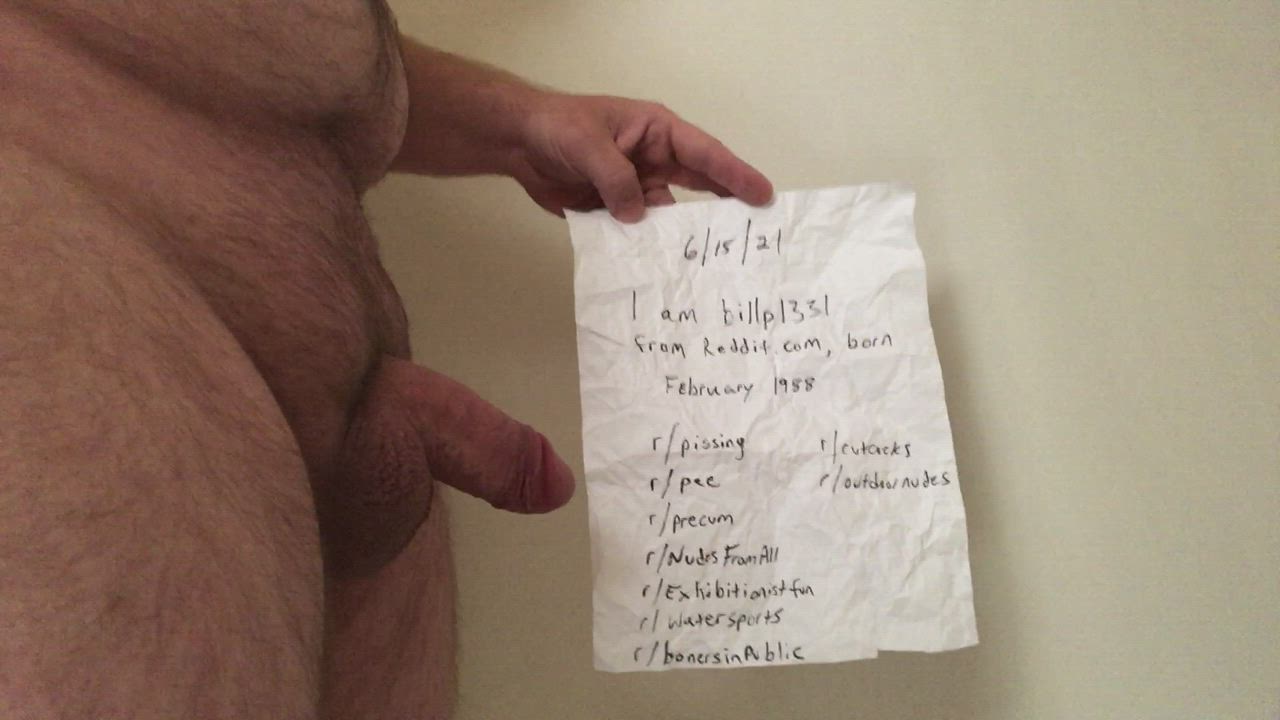 6/15/21
I am billp1331
from Reddit.com, born
February 1988
r/pissing
r/pee
r/precum
r/NudesFromAll
r/Exhibitionistfun
r/watersports
r/bonersinPublic
r/cutcocks
r/outdoornudes